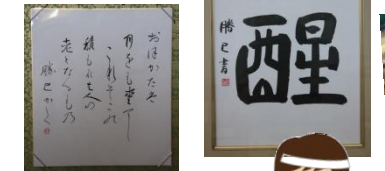 おほかたは
月をも愛でし
これぞこの
積もれば人の
老となるもの
勝己かく
醒
勝己書